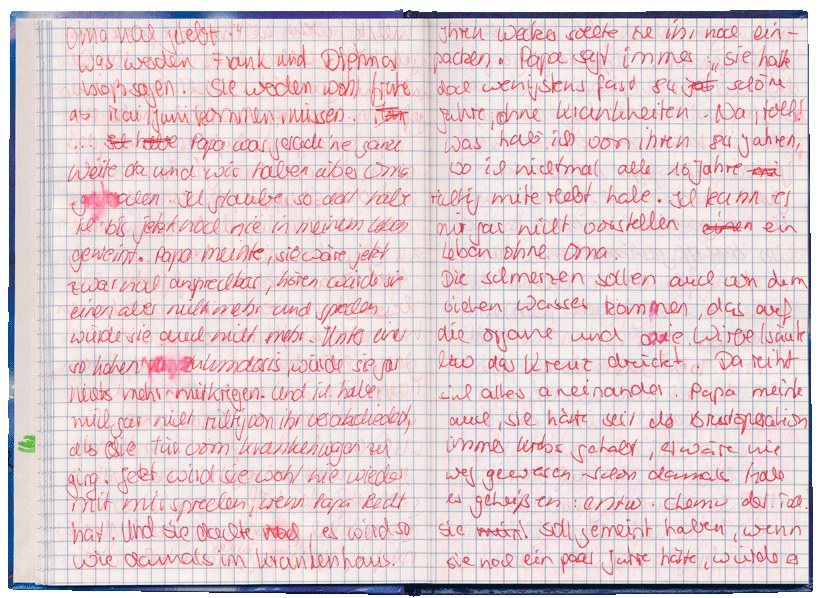 Oma mal gelebt."
Was werden Frank und Dietmar
bloß sagen. Sie werden wohl früher
als Mai/Juni kommen müssen.
... Papa war gerade ne ganze
Weile da und wir haben über Oma
Ich glaube so doll habe
ich bis jetzt noch nie in meinem Leben
geweint. Papa meinte, sie wäre jetzt
zwar mal ansprechbar, hören würde sie
einen aber nicht mehr und sprechen
würde sie auch nicht mehr. Unter einer
so hohen würde sie gar
nichts mehr mitkriegen. Und ich habe
mich gar nicht richtig von ihr verabschiedet,
als die Tür vom Krankenwagen zu
ging. Jetzt wird sie wohl nie wieder
mit mir sprechen, wenn Papa Recht
hat. Und sie dachte noch, es wird so
wie damals im Krankenhaus.
Ihren Wecker sollte ich ihr noch ein-
packen. Papa sagt immer: „sie hatte
doch wenigstens fast 84 schöne
Jahre, ohne Krankheiten. Na, toll!
Was hab ich von ihren 84 Jahren,
wo ich nichtmal alle 16 Jahre
richtig miterlebt habe. Ich kann es
mir gar nicht vorstellen ein
Leben ohne Oma.
Die Schmerzen sollen auch von dem
bichen Wasser kommen, das auf
die Organe und die Wirbelsäule
bzw das Kreuz drückt. Da reiht
sich alles aneinander. Papa meinte
auch, sie hätte seit der Brustoperation
immer Krebs gehabt, er wäre nie
weg gewesen. Schon damals habe
es geheißen: entw. Chemo oder Tod.
sie soll gemeint haben, wenn
sie noch ein paar Jahre hätte, würde es